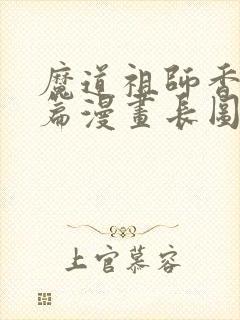 魔道祖師香
篇漫畫長圖
上官慕容